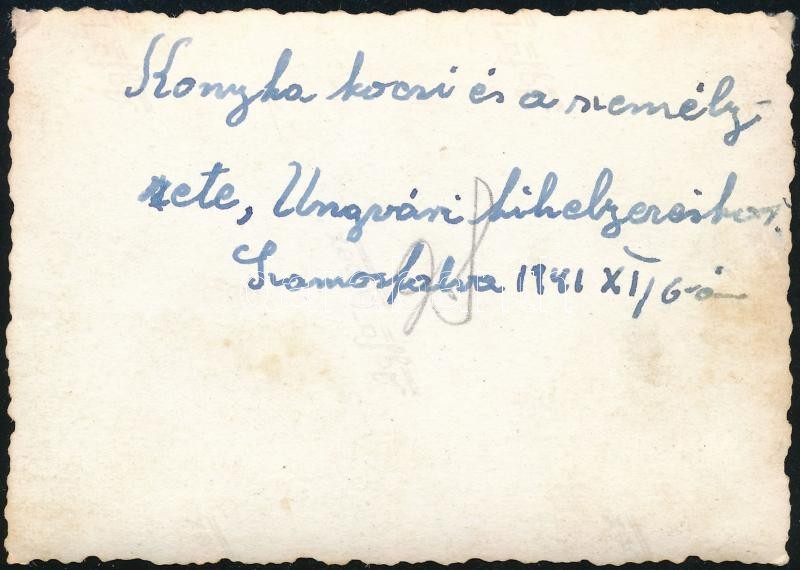 Konyha kocsi és a személy-
zete, Ungvári kihelyezéskor.
Szamosfalva 1941 XI/6-án